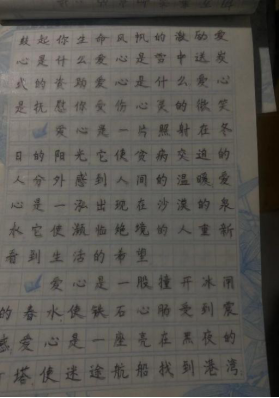 鼓起你生命风帆的激励爱
心是什么爱心是雪中送炭
式的资助爱心是什么爱心
是抚慰你受伤心灵的微笑
爱心是一片照射在冬
日的阳光它使贫病交迫的
人分外感到人间的温暖爱
心是一泓出现在沙漠的泉
水它使濒临绝境的人重新
看到生活的希望
爱心是一股撞开冰闸
的春水使铁石心肠受到震
感爱心是一座亮在黑夜的
灯塔使迷途航船找到港湾